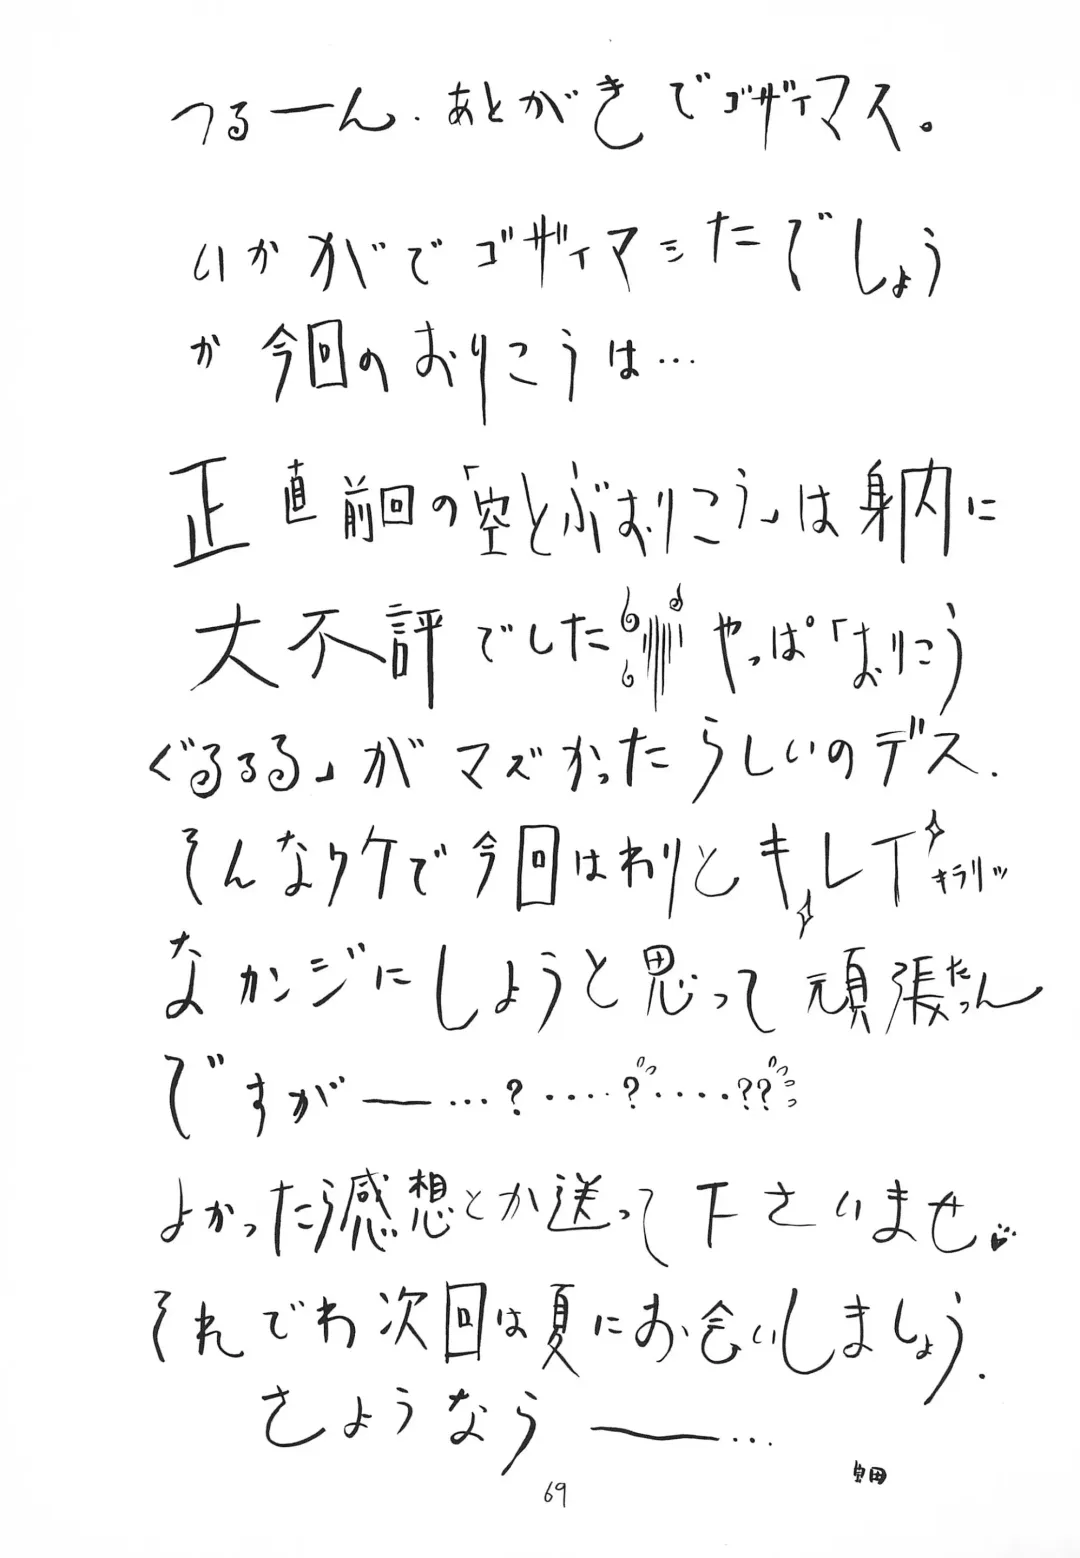 つるーん.あとがきでゴザイマス。
いかがでゴザイマシたでしょう
か今回のおりこうは…
正直前回の「空とぶおりこう」は身内に
大不評でした やっぱ「おりこう
ぐるるる」がマズかったらしいのデス.
そんなワケで今回はわりとキレイ キラリッ
なカンジにしようと思って頑張たっん
ですがー…?‥‥?‥‥??
よかったら感想とか送って下さいませ
それでわ次回は夏にお会いしましょう.
さようならー…
69